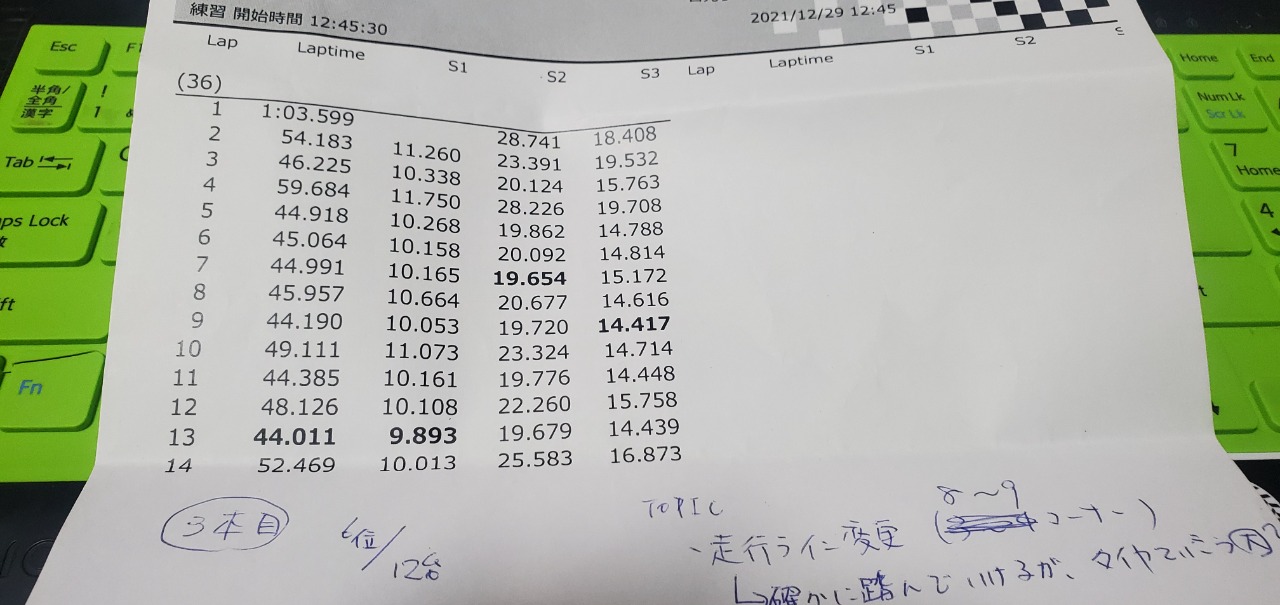 練習 開始時間 12:45:30
2021/12/29 12:45
Lap Laptime S1 S2 S3 Lap Laptime S1 S2
(36)
1 1:03.599 28.741 18.408
2 54.183 11.260 23.391 19.532
3 46.225 10.338 20.124 15.763
4 59.684 11.750 28.226 19.708
5 44.918 10.268 19.862 14.788
6 45.064 10.158 20.092 14.814
7 44.991 10.165 19.654 15.172
8 45.957 10.664 20.677 14.616
9 44.190 10.053 19.720 14.417
10 49.111 11.073 23.324 14.714
11 44.385 10.161 19.776 14.448
12 48.126 10.108 22.260 15.758
13 44.011 9.893 19.679 14.439
14 52.469 10.013 25.583 16.873
3本目 6位/12台
TOPIC
8〜9
・走行ライン変更 ( コーナー)
↳確かに踏んでいけるが、タイヤ
Esc
F1
半角/
全角
漢字
!
1
Tab
ps Lock
ft
Fn
Home
End
NumLk
Scr Lk
7
Home
4